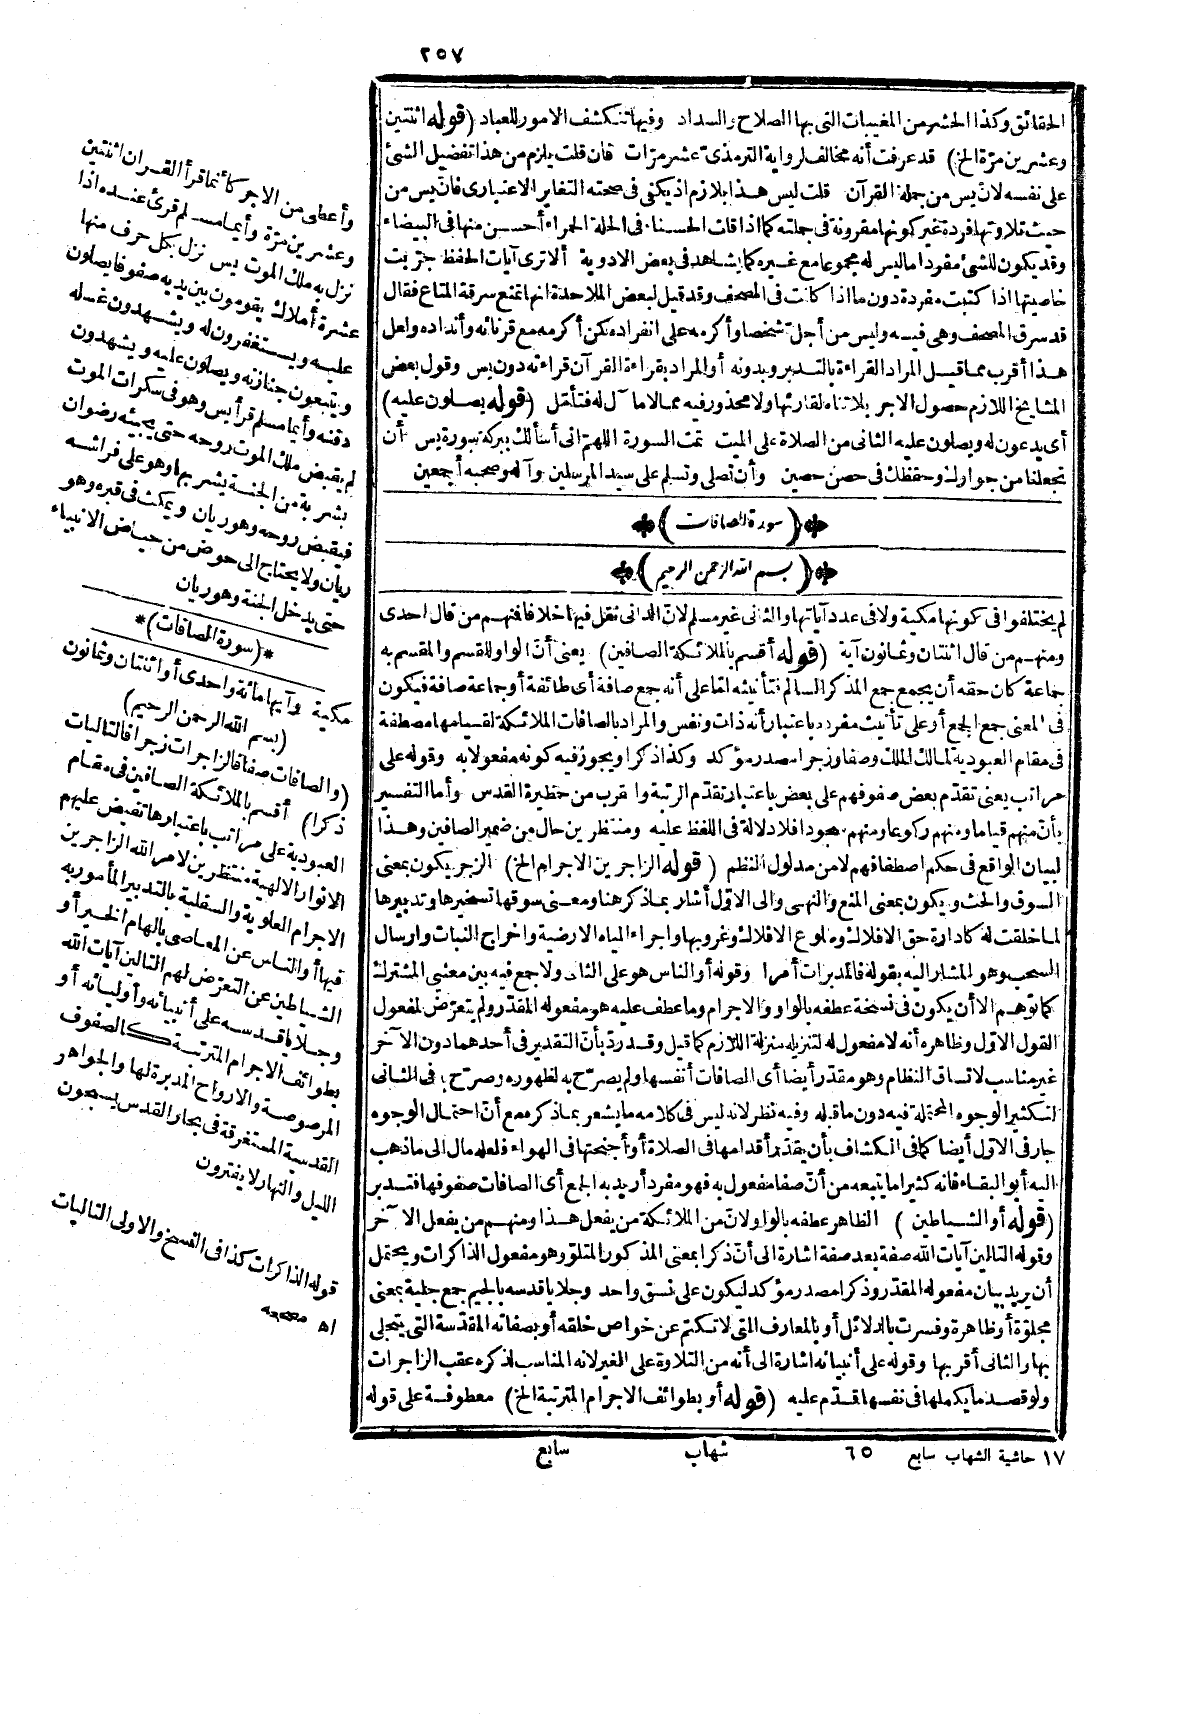 ٢٥٧
الحقائق وكذا الحشر من المغيبات التى بها الصلاح والسداد وفيها تنكشف الامور للعباد (قوله اثنتين
وعشرين مرّة الخ) قد عرفت أنه مخالف لرواية الترمذىّ عشر مرّات فان قلت يلزم من هذا تفضيل الشئ
على نفسه لانّ يس من جملة القرآن قلت ليس هذا بلازم اذ يكفى فى صحته التغاير الاعتبارى فانّ يس من
حيث تلاوتها فردة غير كونها مقرونة فى جملته كما اذا قلت الحسناء فى الحلة الحمراء أحسن منها فى البيضاء
وقد يكون للشئ مفردا ما ليس له مجموعا مع غيره كما يشاهد فى بعض الادوية ألا ترى آيات الحفظ جرّبت
خاصيتها اذا كتبت مفردة دون ما اذا كانت فى المصحف وقد قيل لبعض الملاحدة انها تمنع سرقة المتاع فقال
قد سرق المصحف وهى فيه وليس من أجلّ شخصا وأكرمه على انفراده كمن أكرمه مع قرنائه وأنداده ولعل
هذا أقرب مما قيل المراد القراءة بالتدبر وبدونه أو المراد بقراءة القرآن قراءته دون يس وقول بعض
المشايخ اللازم حصول الاجر بلا تناه لقارئها ولا محذور فيه مما لا مآل له فتأمّل (قوله يصلون عليه)
أى يدعون له ويصلون عليه الثانى من الصلاة على الميت تمت السورة اللهمّ انى أسألك ببركة سورة يس أن
تجعلنا من جوارك وحفظك فى حصن حصين وأن تصلى وتسلم على سيد المرسلين وآله وصحبه أجمعين
(سورة الصافات)
(بسم الله الرحمن الرحيم)
لم يختلفوا فى كونها مكية ولا فى عدد آياتها والثانى غير مسلم لانّ الدانى نقل فيها خلافا فمنهم من قال احدى
ومنهم من قال اثنتان وثمانون آية (قوله أقسم بالملائكة الصافين) يعنى أنّ الواو للقسم والمقسم به
جماعة كان حقه أن يجمع جمع المذكر السالم فتأنيثه امّا على أنه جمع صافة أى طائفة أو جماعة صافة فيكون
فى المعنى جمع الجمع أو على تأنيث مفرده باعتبار أنه ذات ونفس والمراد بالصافات الملائكة لقيامها مصطفة
فى مقام العبودية لمالك الملك وصفا وزجرا مصدر مؤكد وكذا ذكرا ويجوز فيه كونه مفعولا به وقوله على
مراتب يعنى تقدّم بعض صفوفهم على بعض باعتبار تقدّم الرتبة والقرب من حظيرة القدس وأما التفسير
بأنّ منهم قياما ومنهم ركوعا ومنهم سجودا فلا دلالة فى اللفظ عليه ومنتظرين حال من ضمير الصافين وهذا
لبيان الواقع فى حكم اصطفافهم لا من مدلول النظم (قوله الزاجرين الاجرام الخ) الزجر يكون بمعنى
السوق والحث ويكون بمعنى المنع والنهى والى الاوّل أشار بما ذكر هنا ومعنى سوقها تسخيرها وتدبيرها
لما خلقت له كادارة حق الافلاك وطلوع الافلاك وغروبها واجراء المياه الارضية واخراج النبات وارسال
السحب وهو المشار اليه بقوله فالمدبرات أمرا وقوله أو الناس هو على الثانى ولا جمع فيه بين معنيى المشترك
كما توهم الا أن يكون فى نسخة عطفه بالواو والاجرام وما عطف عليه هو مفعوله المقدّر ولم يتعرّض لمفعول
القول الاوّل وظاهره أنه لا مفعول له لتنزيله منزلة اللازم كما قيل وقد ردّ بأنّ التقدير فى أحدهما دون الآخر
غير مناسب لاتساق النظام وهو مقدّر أيضا أى الصافات أنفسها ولم يصرّح به لظهوره وصرّح به فى الثانى
لتكثير الوجوه المحتملة فيه دون ما قبله وفيه نظر لانه ليس فى كلامه ما يشعر بما ذكر مع أنّ احتمال الوجوه
جار فى الاوّل أيضا كما فى الكشاف بأن يقدّر أقدامها فى الصلاة أو أجنحتها فى الهواء فلعله مال الى ما ذهب
اليه أبو البقاء فانه كثيرا ما يتبعه من أنّ صفا مفعول به فهو مفرد أريد به الجمع أى الصافات صفوفها فتدبر
(قوله أو الشياطين) الظاهر عطفه بالواو لانّ من الملائكة من يفعل هذا ومنهم من يفعل الآخر
وقوله التالين آيات الله صفة بعد صفة اشارة الى أنّ ذكرا بمعنى المذكور المتلوّ وهو مفعول الذاكرات ويحتمل
أن يريد بيان مفعوله المقدّر وذكرا مصدر مؤكد ليكون على نسق واحد وجلايا قدسه بالجيم جمع جلية بمعنى
مجلوّة أو ظاهرة وفسرت بالدلائل أو بالمعارف التى لا تكتم عن خواص خلقه أو بصفاته المقدّسة التى يتجلى
بها والثانى أقربها وقوله على أنبيائه اشارة الى أنه من التلاوة على الغير لانه المناسب لذكره عقب الزاجرات
ولو قصد ما يكملها فى نفسها قدّم عليه (قوله أو بطوائف الاجرام المترتبة الخ) معطوفة على قوله
١٧ حاشية الشهاب سابع ٦٥ شهاب سابع
وأعطى من الاجر كأنما قرأ القرآن اثنتين
وعشرين مرّة وأيما مسلم قرئ عنده اذا
نزل به ملك الموت يس نزل بكل حرف منها
عشرة أملاك يقومون بين يديه صفوفا يصلون
عليه ويستغفرون له ويشهدون غسله
ويتبعون جنازته ويصلون عليه ويشهدون
دفنه وأيما مسلم قرأ يس وهو فى سكرات الموت
لم يقبض ملك الموت روحه حتى يجيئه رضوان
بشربة من الجنة يشربها وهو على فراشه
فيقبض روحه وهو ريان ويمكث فى قبره وهو
ريان ولا يحتاج الى حوض من حياض الانبياء
حتى يدخل الجنة وهو ريان
*(سورة الصافات)*
مكية وآيها مائة واحدى أو اثنتان وثمانون
(بسم الله الرحمن الرحيم)
(والصافات صفا فالزاجرات زجرا فالتاليات
ذكرا) أقسم بالملائكة الصافين فى مقام
العبودية على مراتب باعتبارها تفيض عليهم
الانوار الالهية منتظرين لامر الله الزاجرين
الاجرام العلوية والسفلية بالتدبير المأمور به
فيها أو الناس عن المعاصى بالهام الخير أو
الشياطين عن التعرّض لهم التالين آيات الله
وجلايا قدسه على أنبيائه وأوليائه أو
بطوائف الاجرام المترتبة كالصفوف
المرصوصة والارواح المدبرة لها والجواهر
القدسية المستغرقة فى بحار القدس يسبحون
الليل والنهار لا يفترون
قوله الذاكرات كذا فى النسخ والاولى التاليات
اه مصححه